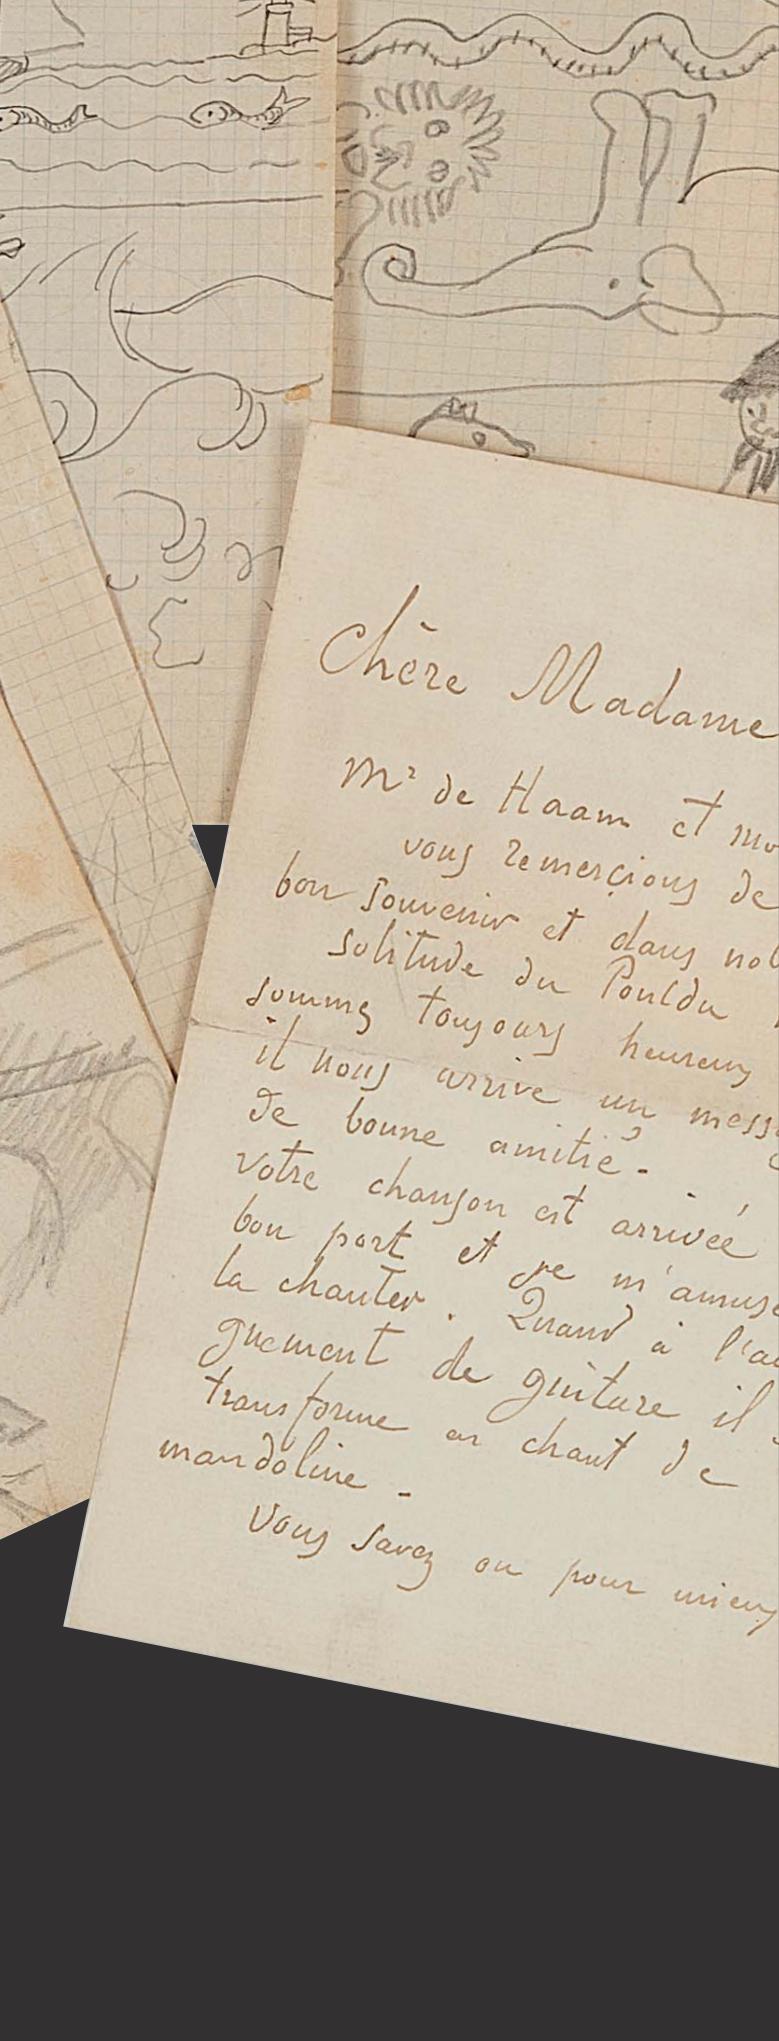 Chère Madame
Mr de Haan et mo
vous remerçions de
bon souvenir et dans not
solitude du Pouldu
sommes toujours heureux
il nous arrive un messa
de bonne amitié.
votre chanson est arrivée
bon port et je m'amuse
la chanter. Quand à l'ac
gnement de guitare il
transforme en chant de
mandoline.
Vous savez ou pour mieux